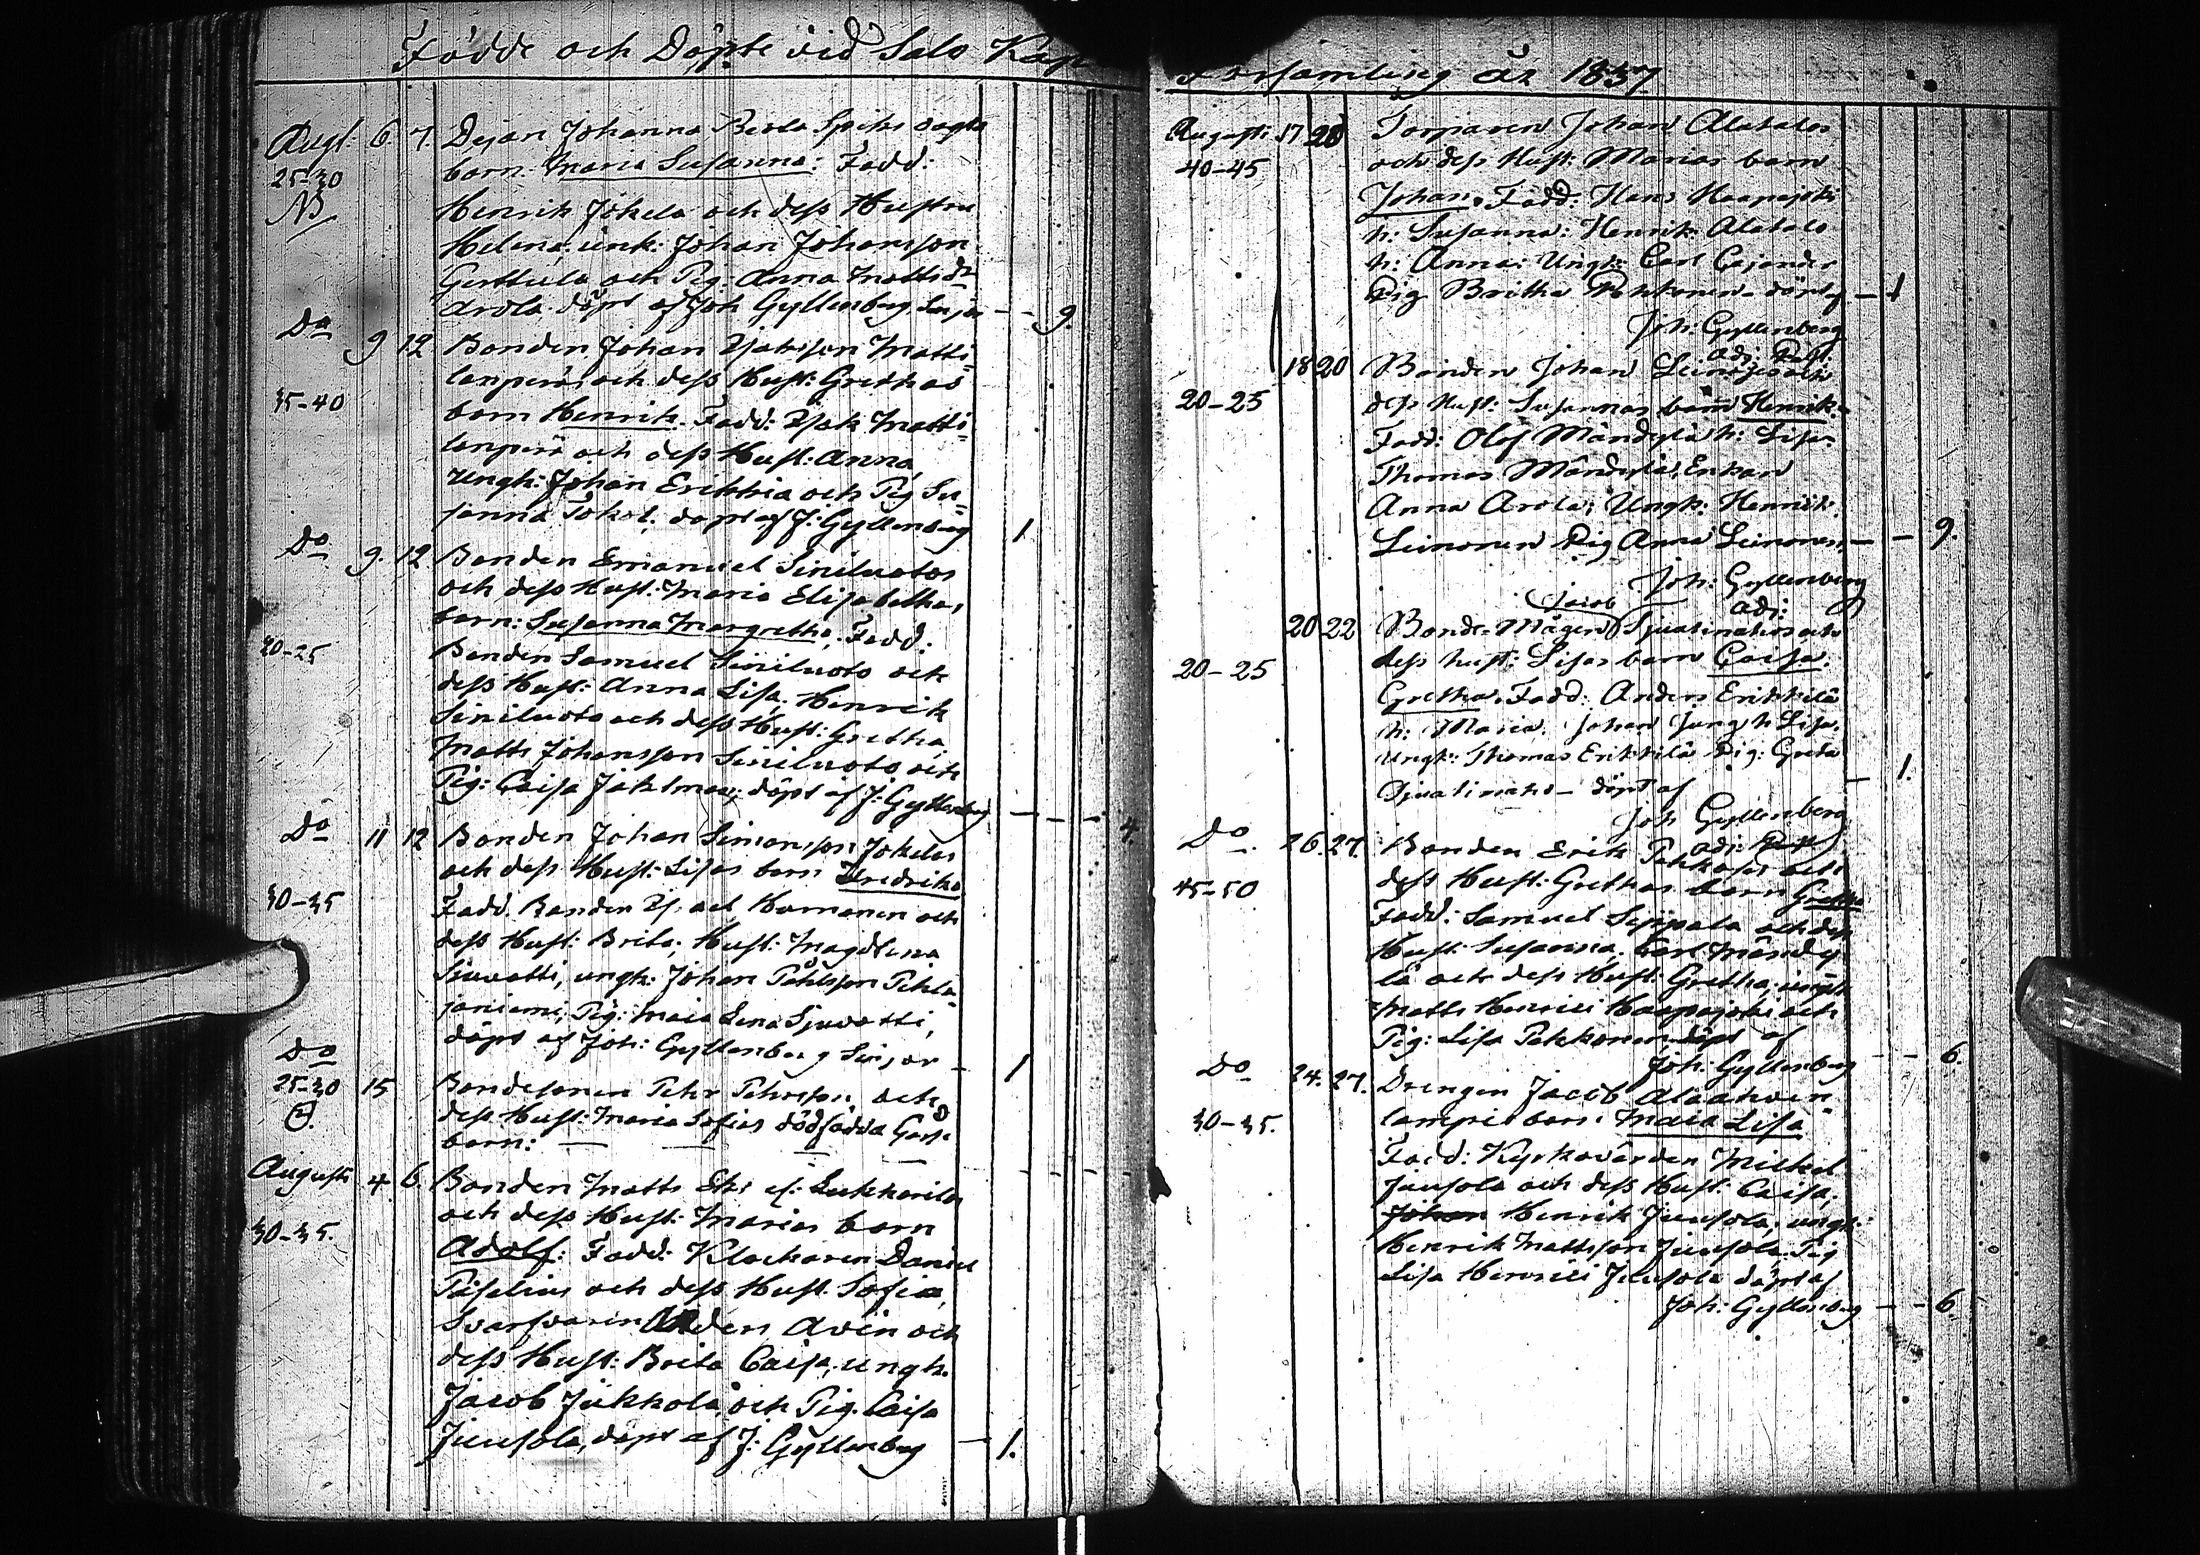 Födde och Döpte vid Salo Kap
Augt: 6. 7. Dejan Johanna Berta Spiks
25-30 barn: Maria Susanna: Fadd:
NB Henrik Jokela och dess Hustru
Helena, unk: Johan Johansson
Gerttula och Pig: Anna Matts dr
Arola döpt af Joh Gyllenberg - - 9.
Do 9 12 Bonden Johan Isaksson Matti=
lanperäs och dess Hust: Grethas
35-40 barn Henrik. Fadd: Isak Matti=
lanperä och dess Hust: Anna,
Ungk: Johan Erikkia och Pig Su=
sanna Tokol. döpt af J: Gyllenberg 1
Do 9. 12 Bonden Emanuel Siniluotos
och dess Hust: Maria Elisabethas,
barn: Susanna Margretha. Fadd:
20-25 Bonden Samuel Siniluoto och
dess Hust: Anna Lisa. Henrik
Siniluoto och dess Hust: Gretha,
Matts Johansson Siniluoto och
Pig: Caisa döpt af J: Gyllenberg - - - 4.
Do 11 12 Bonden Johan Simonsson Jokelas
och dess Hust: Lisas barn Fredrika
30-35 Fadd. Bonden Hornanen och
dess Hust: Brita, Hust: Magdlena
Siuvatti, ungk: Johan Påhlsson Pihla=
janiemi, Pig: Maia Lena Sjuvatti,
döpt af Joh: Gyllenberg - 1
Do
25-30 15 Bondesonen Petr Petersson och
dess Hust: Maria Sofias dödfödda Gosse
barn:
Augusti 4. 6. Bonden Matts Lukkarilas
och dess Hust: Marias barn
30-35. Adolf: Fadd: Klockaren Daniel
Piselius och dess Hust. Sofia,
Svarfvaren Anders Avén och
dess Hust: Brita Caisa, ungk.
Jacob Jukkola, och Pig. Caisa
Juusola, döpt af J: Gyllenberg - 1.
Församling År 1837
Augusti 17 20 Torparen Johan Alatalos
40-45 och dess Hust: Marias barn
Johan. Fadd: Hans Haapajoki
h: Susanna: Henrik Alatalo
h: Anna: Ungk: Carl Cajander
Pig Britha döpt af - 1
Joh: Gyllenberg
18 20 Bonden Johan och
20-25 dess Hust: Susannas barn Henrik.
Fadd: Olof Mändylä h: Lisa
Thomas Mändylä, Enkan
Anna Arola, Ungk: Henrik
Leinonen Pig Anna Leinonen, - - 9.
Joh: Gyllenberg
adj:
Jacob
20 22 Bonde-Mågen och
20-25 dess hust: Lisas barn Caisa
Gretha. Fadd: Anders Erikkilä
h: Maria. Johan Jung h Lisa.
Ungk: Thomas Erikkilä Pig: Greta
döpt af - 1.
Joh Gyllenberg
Do. 26. 27. Bonden Erik Pekkoses och
45-50 dess Hust: Grethas barn Gretha
Fadd: Samuel Seppala och dess
Hust: Susanna, Carl Mändy=
lä och dess Hust: Gretha, ungk
Matts Henrici Haapajoki och
Pig: Lisa Pekkonen döpt af
Joh: Gyllenberg - - 6.
Do 24. 27. Drengen Jacob
30-35. barn: Maia Lisa
Fadd: Kyrkovärden Michel
Juusola och dess Hust: Caisa,
Henrik Juusola, ungk:
Henrik Mattsson Juusola Pig
Lisa Henrici Juusola döpt af
Joh: Gyllenberg - - 6